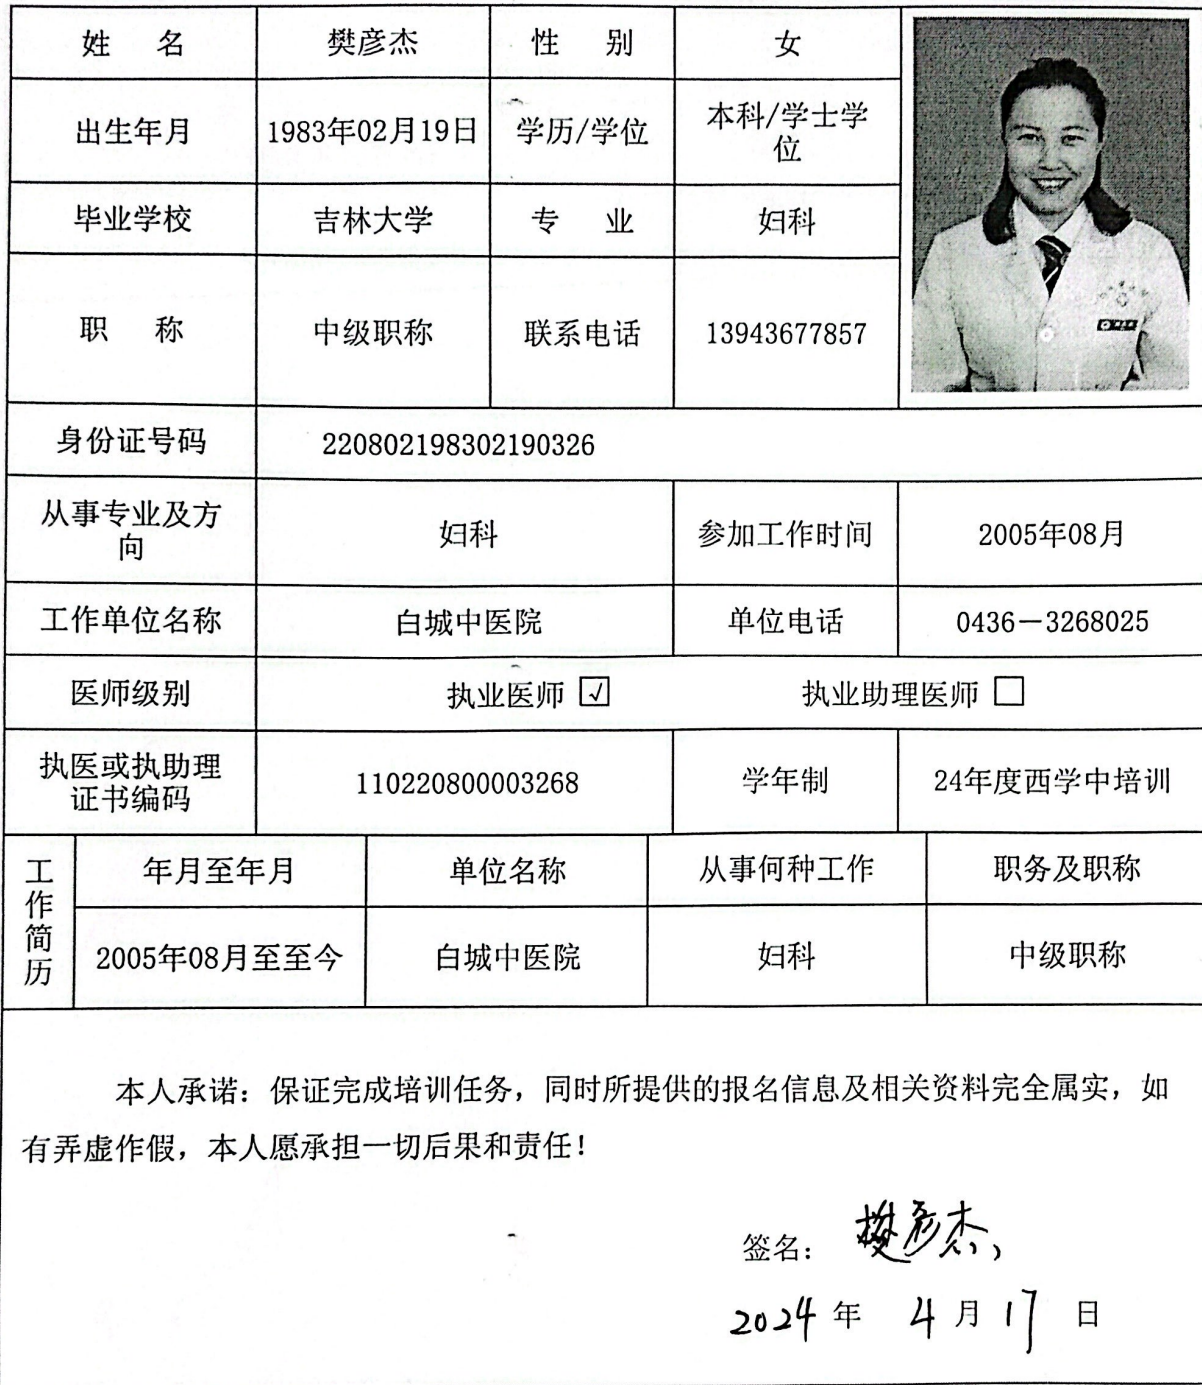 姓 名 樊彦杰 性 别 女
出生年月 1983年02月19日 学历/学位 本科/学士学
位
毕业学校 吉林大学 专 业 妇科
职 称 中级职称 联系电话 13943677857
身份证号码 220802198302190326
从事专业及方
向 妇科 参加工作时间 2005年08月
工作单位名称 白城中医院 单位电话 0436－3268025
医师级别 执业医师 ☑ 执业助理医师 □
执医或执助理
证书编码 110220800003268 学年制 24年度西学中培训
工作简历 年月至年月 单位名称 从事何种工作 职务及职称
2005年08月至至今 白城中医院 妇科 中级职称
本人承诺：保证完成培训任务，同时所提供的报名信息及相关资料完全属实，如
有弄虚作假，本人愿承担一切后果和责任！
签名： 樊彦杰
2024 年 4 月 17 日